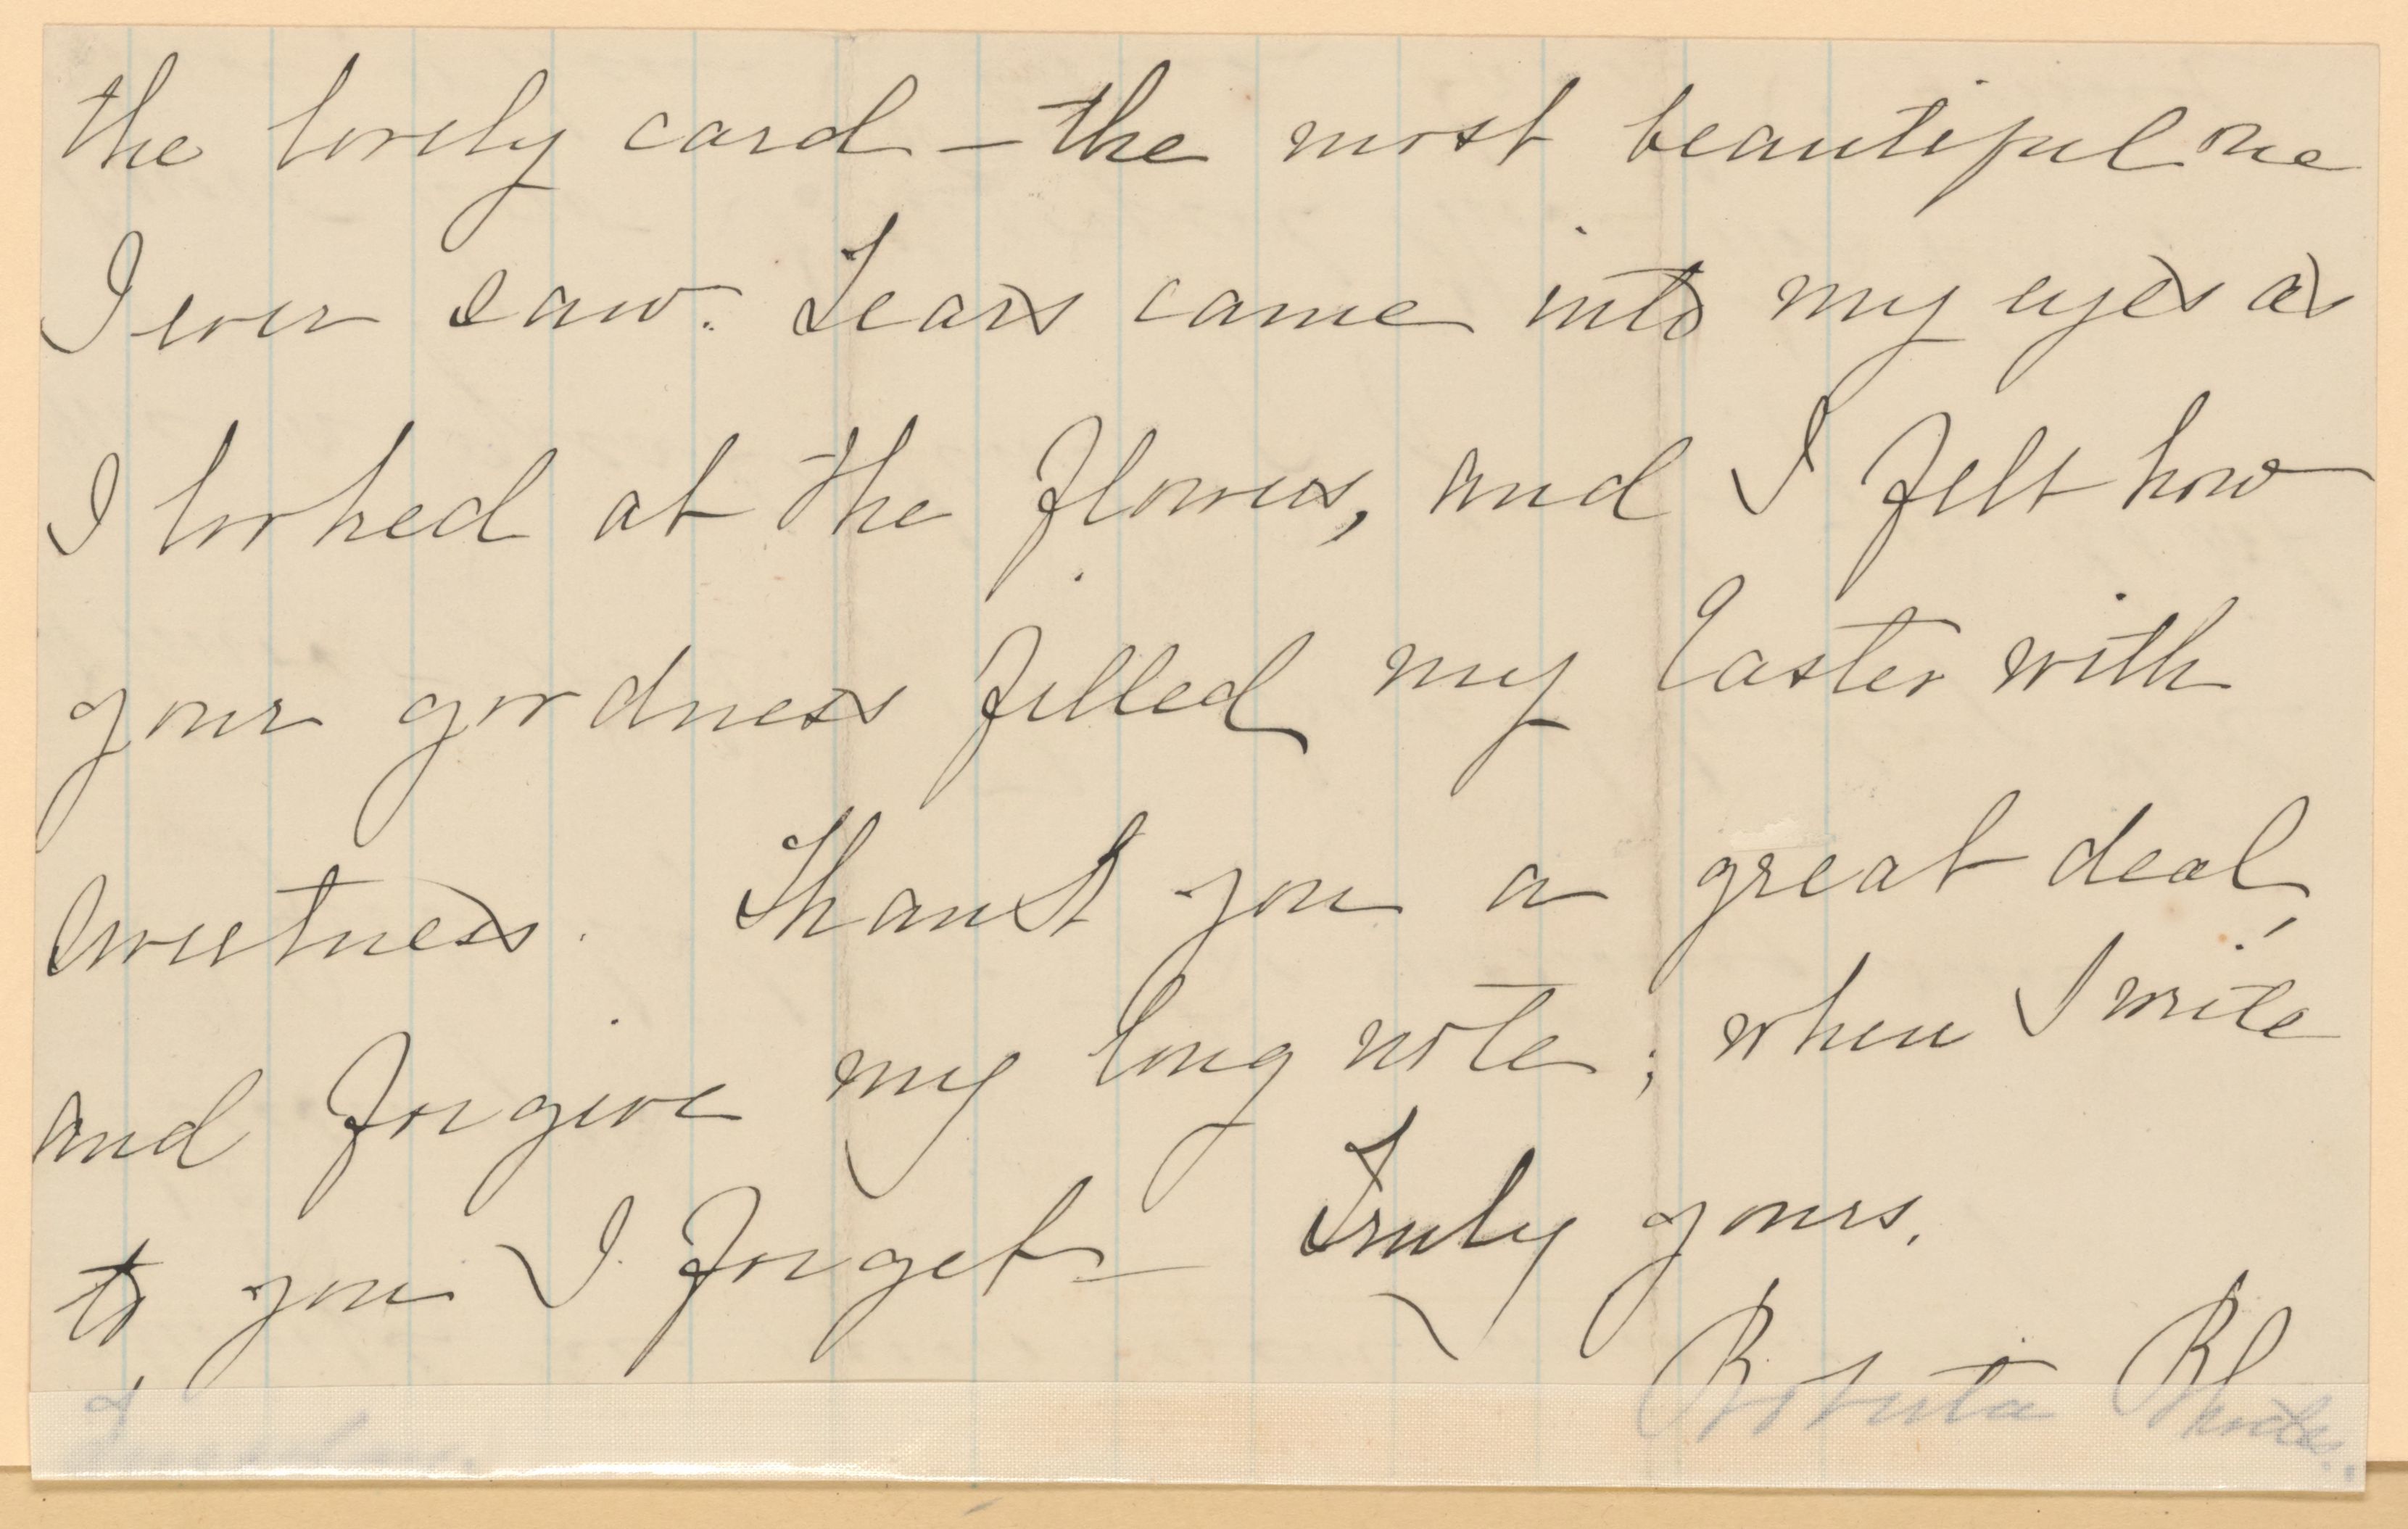 the lovely card — the most beautiful one
I ever saw. Tears came into my eyes as
I looked at the flowers, and I felt how
your goodness filled my Easter with
sweetness. Thank you a great deal,
and forgive my long note; when I write
to you I forget — Truly yours,
Roberta Rhodes.